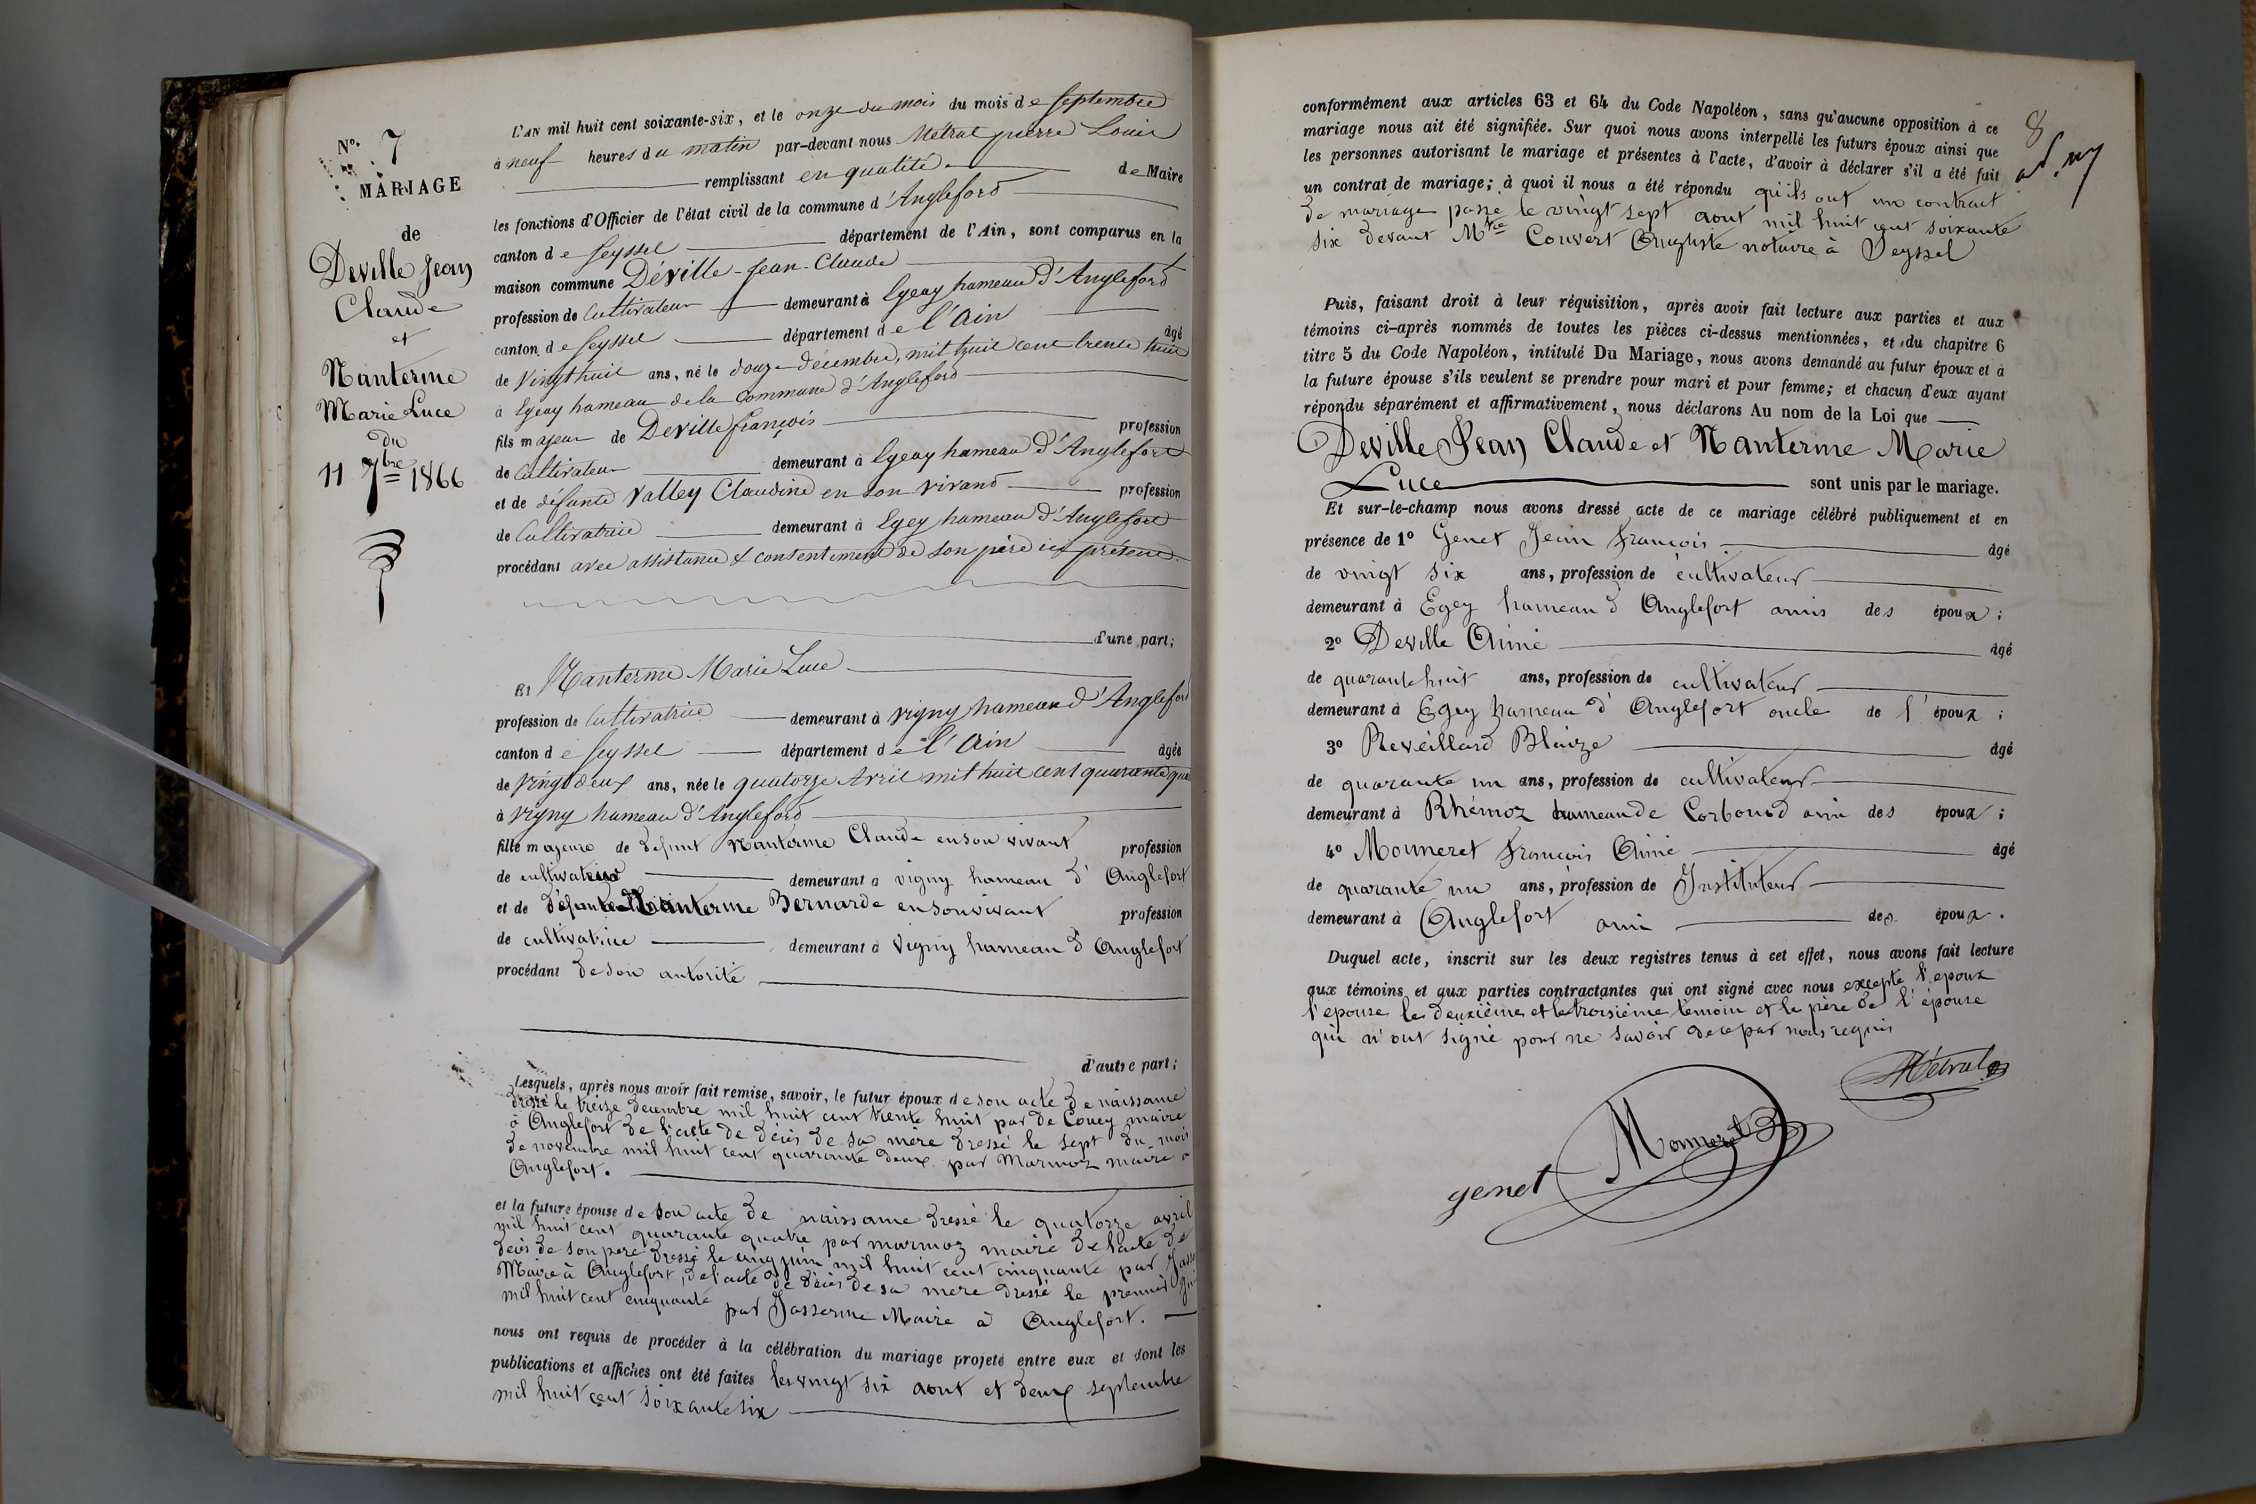 N° 7
MARIAGE
de
Deville Jean
Claude
et
Nanterme
Marie Luce
du
11 7bre 1866
L'AN mil huit cent soixante-six, et le onze du mois du mois de Septembre
à neuf heures du matin par-devant nous Métral pierre Louis
remplissant en qualité de Maire
les fonctions d'Officier de l'état civil de la commune d'Angleford
canton de Seyssel département de l'Ain, sont comparus en la
maison commune Déville Jean-Claude
profession de Cultivateur demeurant à Egeay hameau d'Angleford
canton de Seyssel département de l'Ain âgé
de Vingt huit ans, né le douze décembre, mil huit cent trente huit
à Egeay hameau de la Commune d'Angleford
fils majeur de Deville françois profession
de Cultivateur demeurant à Egeay hameau d'Anglefort
et de défunte Valley Claudine en son vivand profession
de Cultivatrice demeurant à Egey hameau d'Anglefort
procédant avec assistance & consentement de son père ici présent
d'une part;
Et Nanterme Marie Luce
profession de Cultivatrice demeurant à Vigny hameau d'Angleford
canton de Seyssel département de l'Ain âgée
de Vingt deux ans, née le quatorze Avril mil huit cent quarante qua
à Vigny hameau d'Angleford
fille majeure de defunt Nanterme Claude en son vivant profession
de cultivateur demeurant à vigny hameau d'Anglefort
et de défunte Nanterme Bernarde en son vivant profession
de cultivatrice demeurant à Vigny hameau d'Anglefort
procédant de son autorité
d'autre part;
Lesquels, après nous avoir fait remise, savoir, le futur époux de son acte de naissance
dressé le treize décembre mil huit cent trente huit par de Coucy maire
à Anglefort de l'acte de décès de sa mère dressé le sept du mois
de novembre mil huit cent quarante deux par Marmoz maire à
Anglefort.
et la future épouse de son acte de naissance dressé le quatorze avril
mil huit cent quarante quatre par marmoz maire de l'acte de
décès de son père dressé le cinq juin mil huit cent cinquante par
Maire à Anglefort, de l'acte de décès de sa mère dressé le premier
mil huit cent cinquante par Jasserme Maire à Anglefort.
nous ont requis de procéder à la célébration du mariage projeté entre eux et dont les
publications et affiches ont été faites les vingt six aout et deux septembre
mil huit cent soixante six
8
conformément aux articles 63 et 64 du Code Napoléon, sans qu'aucune opposition à ce
mariage nous ait été signifiée. Sur quoi nous avons interpellé les futurs époux ainsi que
les personnes autorisant le mariage et présentes à l'acte, d'avoir à déclarer s'il a été fait
un contrat de mariage; à quoi il nous a été répondu qu'ils ont un contract
de mariage passé le vingt sept aout mil huit cent soixante
six devant Mtre Couvert Auguste notaire à Seyssel
Puis, faisant droit à leur réquisition, après avoir fait lecture aux parties et aux
témoins ci-après nommés de toutes les pièces ci-dessus mentionnées, et du chapitre 6
titre 5 du Code Napoléon, intitulé Du Mariage, nous avons demandé au futur époux et à
la future épouse s'ils veulent se prendre pour mari et pour femme; et chacun d'eux ayant
répondu séparément et affirmativement, nous déclarons Au nom de la Loi que
Deville Jean Claude et Nanterme Marie
Luce sont unis par le mariage.
Et sur-le-champ nous avons dressé acte de ce mariage célébré publiquement et en
présence de 1° Genet Jean François âgé
de vingt six ans, profession de cultivateur
demeurant à Egey hameau d'Anglefort amis des époux;
2° Deville Aimé âgé
de quarante huit ans, profession de cultivateur
demeurant à Egey hameau d'Anglefort oncle de l'époux;
3° Reveillard Blaize âgé
de quarante un ans, profession de cultivateur
demeurant à Rhémoz hameau de Corbonod ami des époux;
4° Monneret François Aimé âgé
de quarante un ans, profession de Instituteur
demeurant à Anglefort ami des époux.
Duquel acte, inscrit sur les deux registres tenus à cet effet, nous avons fait lecture
aux témoins et aux parties contractantes qui ont signé avec nous excepté l'epoux
l'epouse les deuxième et le troisième témoin et le père de l'épouse
qui n'ont signé pour ne savoir de ce par nous requis
Métral
Monneret
genet